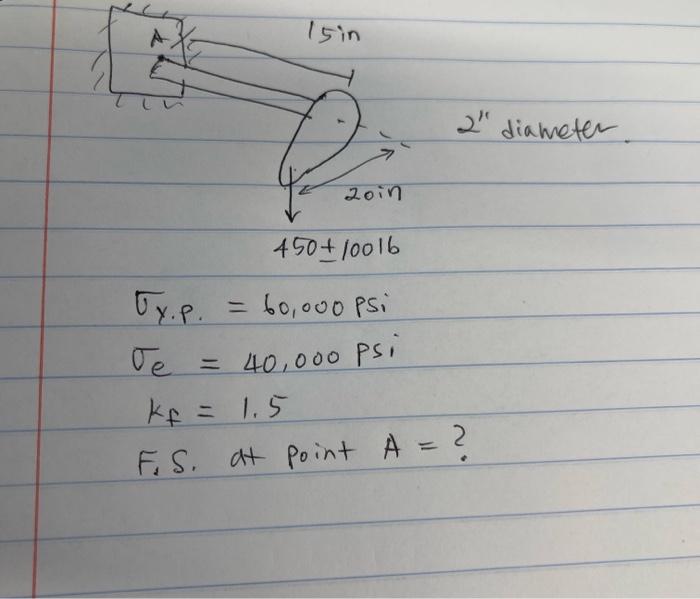 A
15in
2" diameter.
20in
450±100lb
σy.p. = 60,000 psi
σe = 40,000 psi
kf = 1.5
F.S. at point A = ?